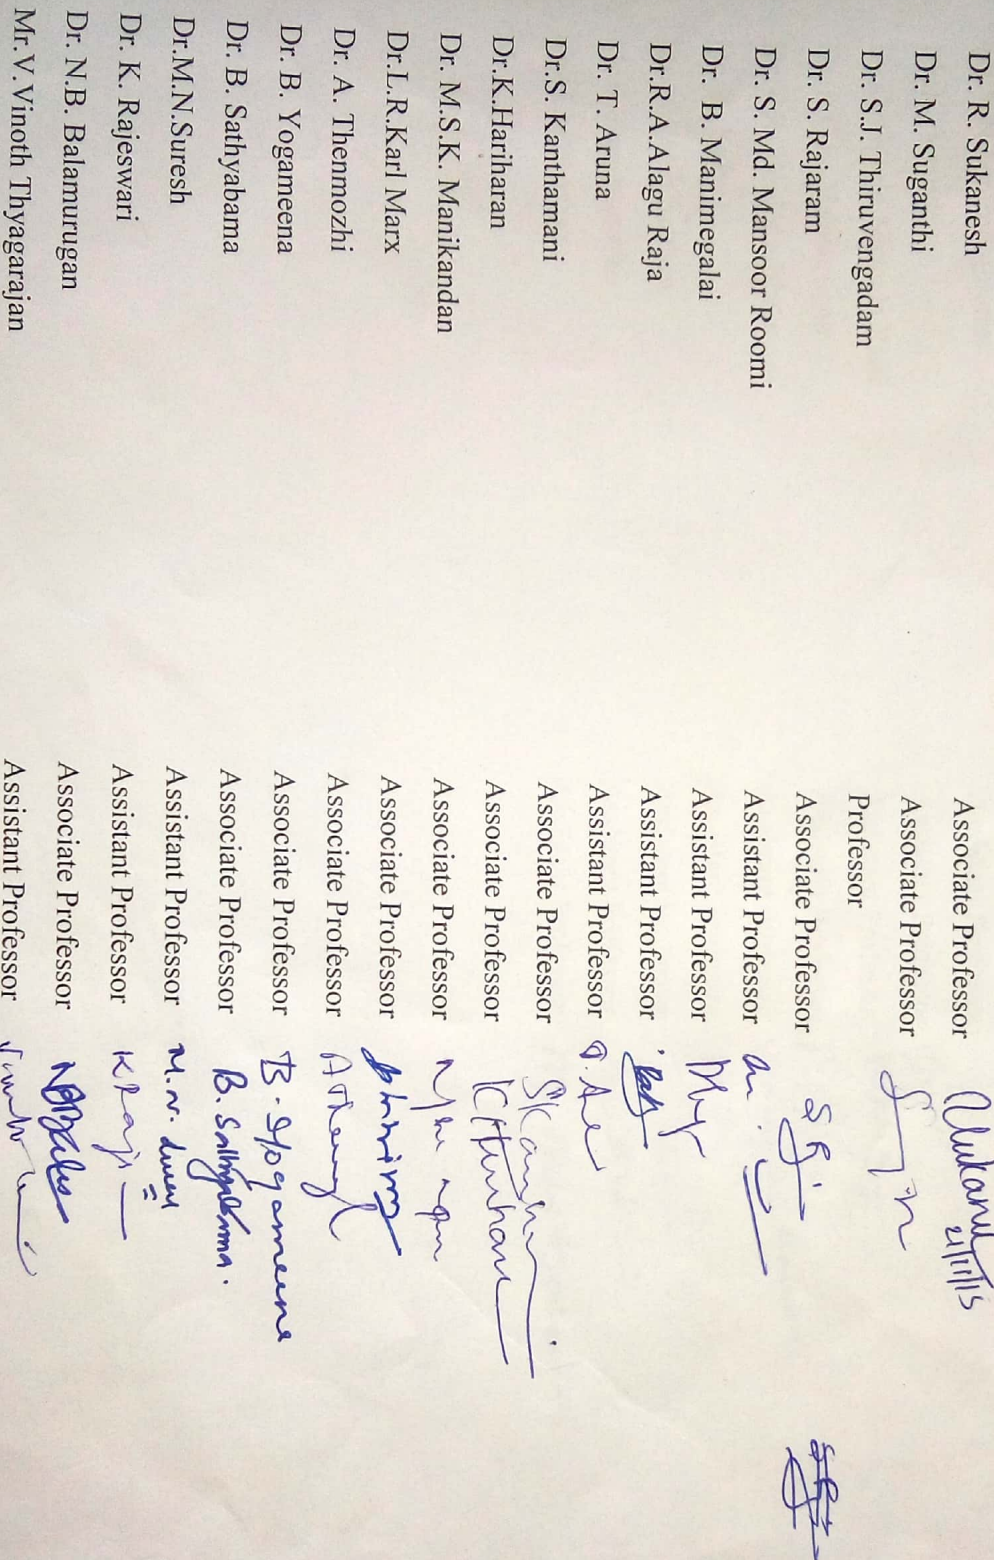 Dr. R. Sukanesh Associate Professor 21/11/15
Dr. M. Suganthi Associate Professor
Dr. S.J. Thiruvengadam Professor
Dr. S. Rajaram Associate Professor
Dr. S. Md. Mansoor Roomi Assistant Professor
Dr. B. Manimegalai Assistant Professor
Dr.R.A.Alagu Raja Assistant Professor
Dr. T. Aruna Assistant Professor
Dr.S. Kanthamani Associate Professor
Dr.K.Hariharan Associate Professor
Dr. M.S.K. Manikandan Associate Professor
Dr.L.R.Karl Marx Associate Professor
Dr. A. Thenmozhi Associate Professor
Dr. B. Yogameena Associate Professor B. Yogameena
Dr. B. Sathyabama Associate Professor B. Sathyabama.
Dr.M.N.Suresh Assistant Professor M.N.
Dr. K. Rajeswari Assistant Professor
Dr. N.B. Balamurugan Associate Professor
Mr.V.Vinoth Thyagarajan Assistant Professor